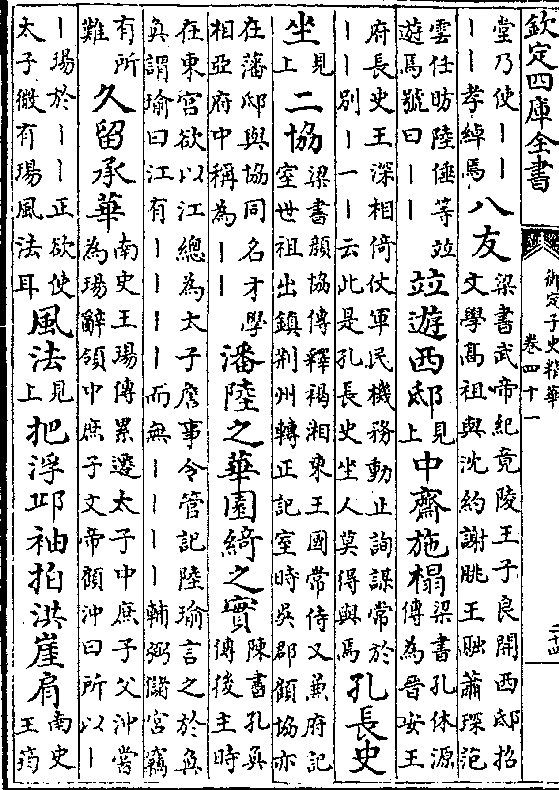 欽定四庫全書
御定子史精華
卷四十一
二十四
堂乃使｜｜
｜｜孝綽焉
八友
梁書武帝紀竟陵王子良開西邸招
文學髙祖與沈約謝朓王融蕭琛范
雲任昉陸倕等竝
遊焉號曰｜｜
竝遊西邸
見
上
中齋施榻
梁書孔休源
傳為晉安王
府長史王深相倚仗軍民機務動止詢謀常於
｜｜别｜一｜云此是孔長史坐人莫得與焉
孔長史
坐
見
上
二協
梁書顔協傳釋褐湘東王國常侍又兼府記
室世祖出鎮荆州轉正記室時吳郡顧協亦
在藩邸與協同名才學
相亞府中稱為｜｜
潘陸之華園綺之實
陳書孔奐
傳後主時
在東宫欲以江總為太子詹事令管記陸瑜言之於奐
奐謂瑜曰江有｜｜｜｜而無｜｜｜｜輔弼儲宫竊
有所
難
久留承華
南史王瑒傳累遷太子中庶子父沖嘗
為瑒辭領中庶子文帝顧沖曰所以｜
｜瑒於｜｜正欲使
太子微有瑒風法耳
風法
見
上
把浮邱袖拍洪崖肩
南史
王筠